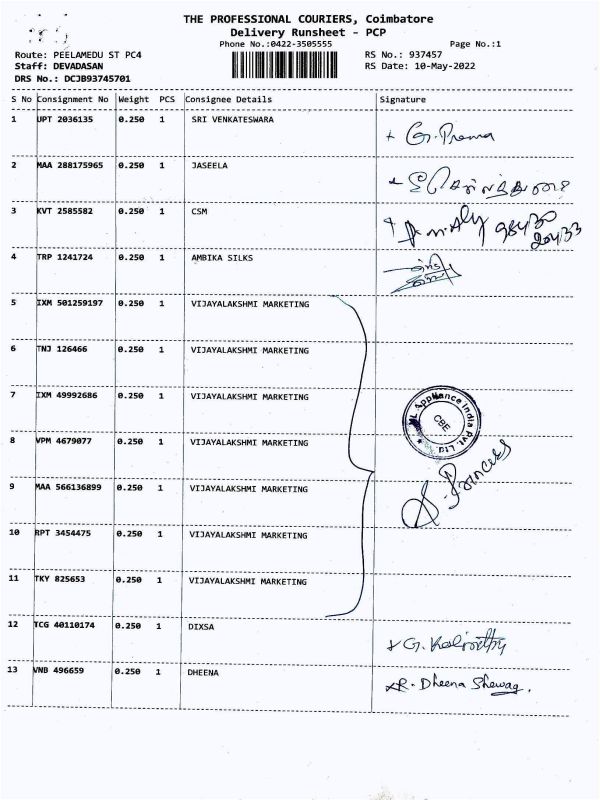 THE PROFESSIONAL COURIERS, Coimbatore
Delivery Runsheet - PCP
Phone No.:0422-3505555
Page No.:1
Route: PEELAMEDU ST PC4
RS No.: 937457
Staff: DEVADASAN
RS Date: 10-May-2022
DRS No.: DCJB93745701
S No Consignment No Weight PCS Consignee Details Signature
1 UPT 2036135 0.250 1 SRI VENKATESWARA
+ G. Prema
2 MAA 288175965 0.250 1 JASEELA
3 KVT 2585582 0.250 1 CSM
98430
20433
4 TRP 1241724 0.250 1 AMBIKA SILKS
5 IXM 501259197 0.250 1 VIJAYALAKSHMI MARKETING
6 TNJ 126466 0.250 1 VIJAYALAKSHMI MARKETING
7 IXM 49992686 0.250 1 VIJAYALAKSHMI MARKETING
Appliance India Pvt. Ltd
CBE
8 VPM 4679077 0.250 1 VIJAYALAKSHMI MARKETING
9 MAA 566136899 0.250 1 VIJAYALAKSHMI MARKETING
S. Princess
10 RPT 3454475 0.250 1 VIJAYALAKSHMI MARKETING
11 TKY 825653 0.250 1 VIJAYALAKSHMI MARKETING
12 TCG 40110174 0.250 1 DIXSA
13 VNB 496659 0.250 1 DHEENA
R. Dheena Shewag.